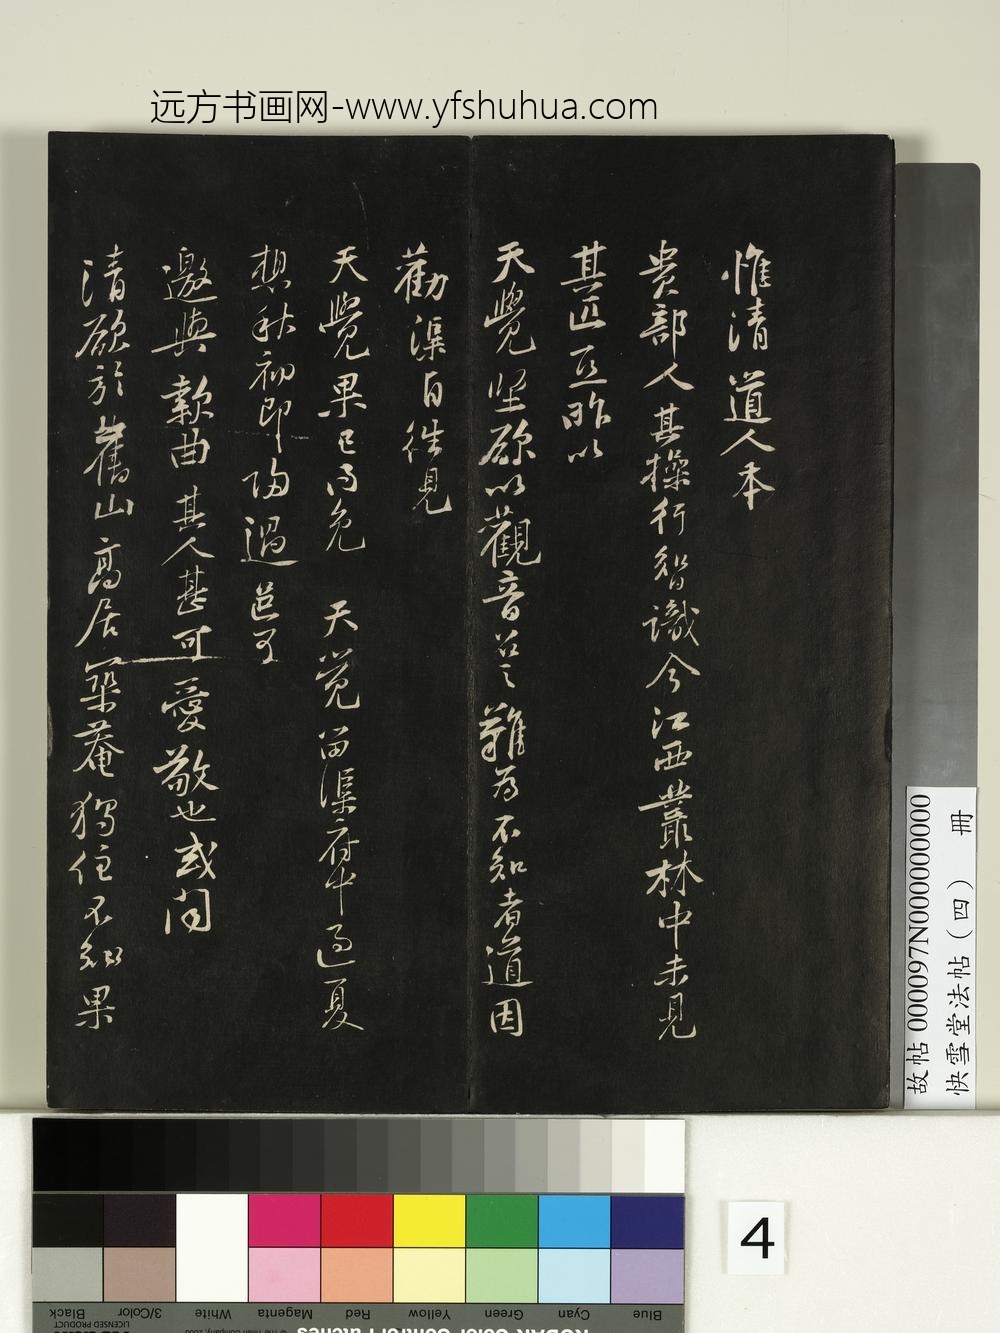 远方书画网-www.yfshuhua.com
惟清道人本
贵部人其操行智識今江西叢林中未見
其匹亙昨以
天覺坚欲以觀音召之難為不知者道因
勸渠自往見
天覺果已得免 天覺留渠府中過夏
想秋初即歸過邑可
邀與款曲其人甚可愛敬也或问
清欲於舊山高居築菴獨住不知果
故帖 000097N000000000
快雪堂法帖（四） 冊
4
Blue
Cyan
Green
Yellow
Red
Magenta
White
3/Color
Black
LICENSED PRODUCT
KODAK Color Control Patches